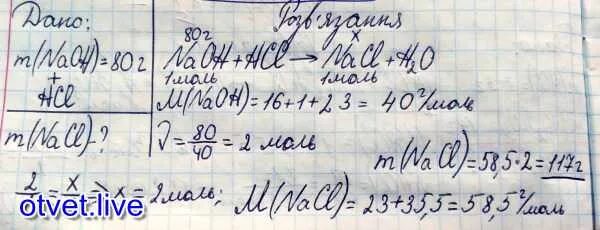 Дано: Розв'язання
m(NaOH)=80г
+
HCl
m(NaCl)-?
80г x
NaOH+HCl→NaCl+H₂O
1моль 1моль
M(NaOH)=16+1+23=40г/моль
ν=80/40=2 моль
m(NaCl)=58,5·2=117г
2 = x => x=2моль; M(NaCl)=23+35,5=58,5г/моль
otvet.live